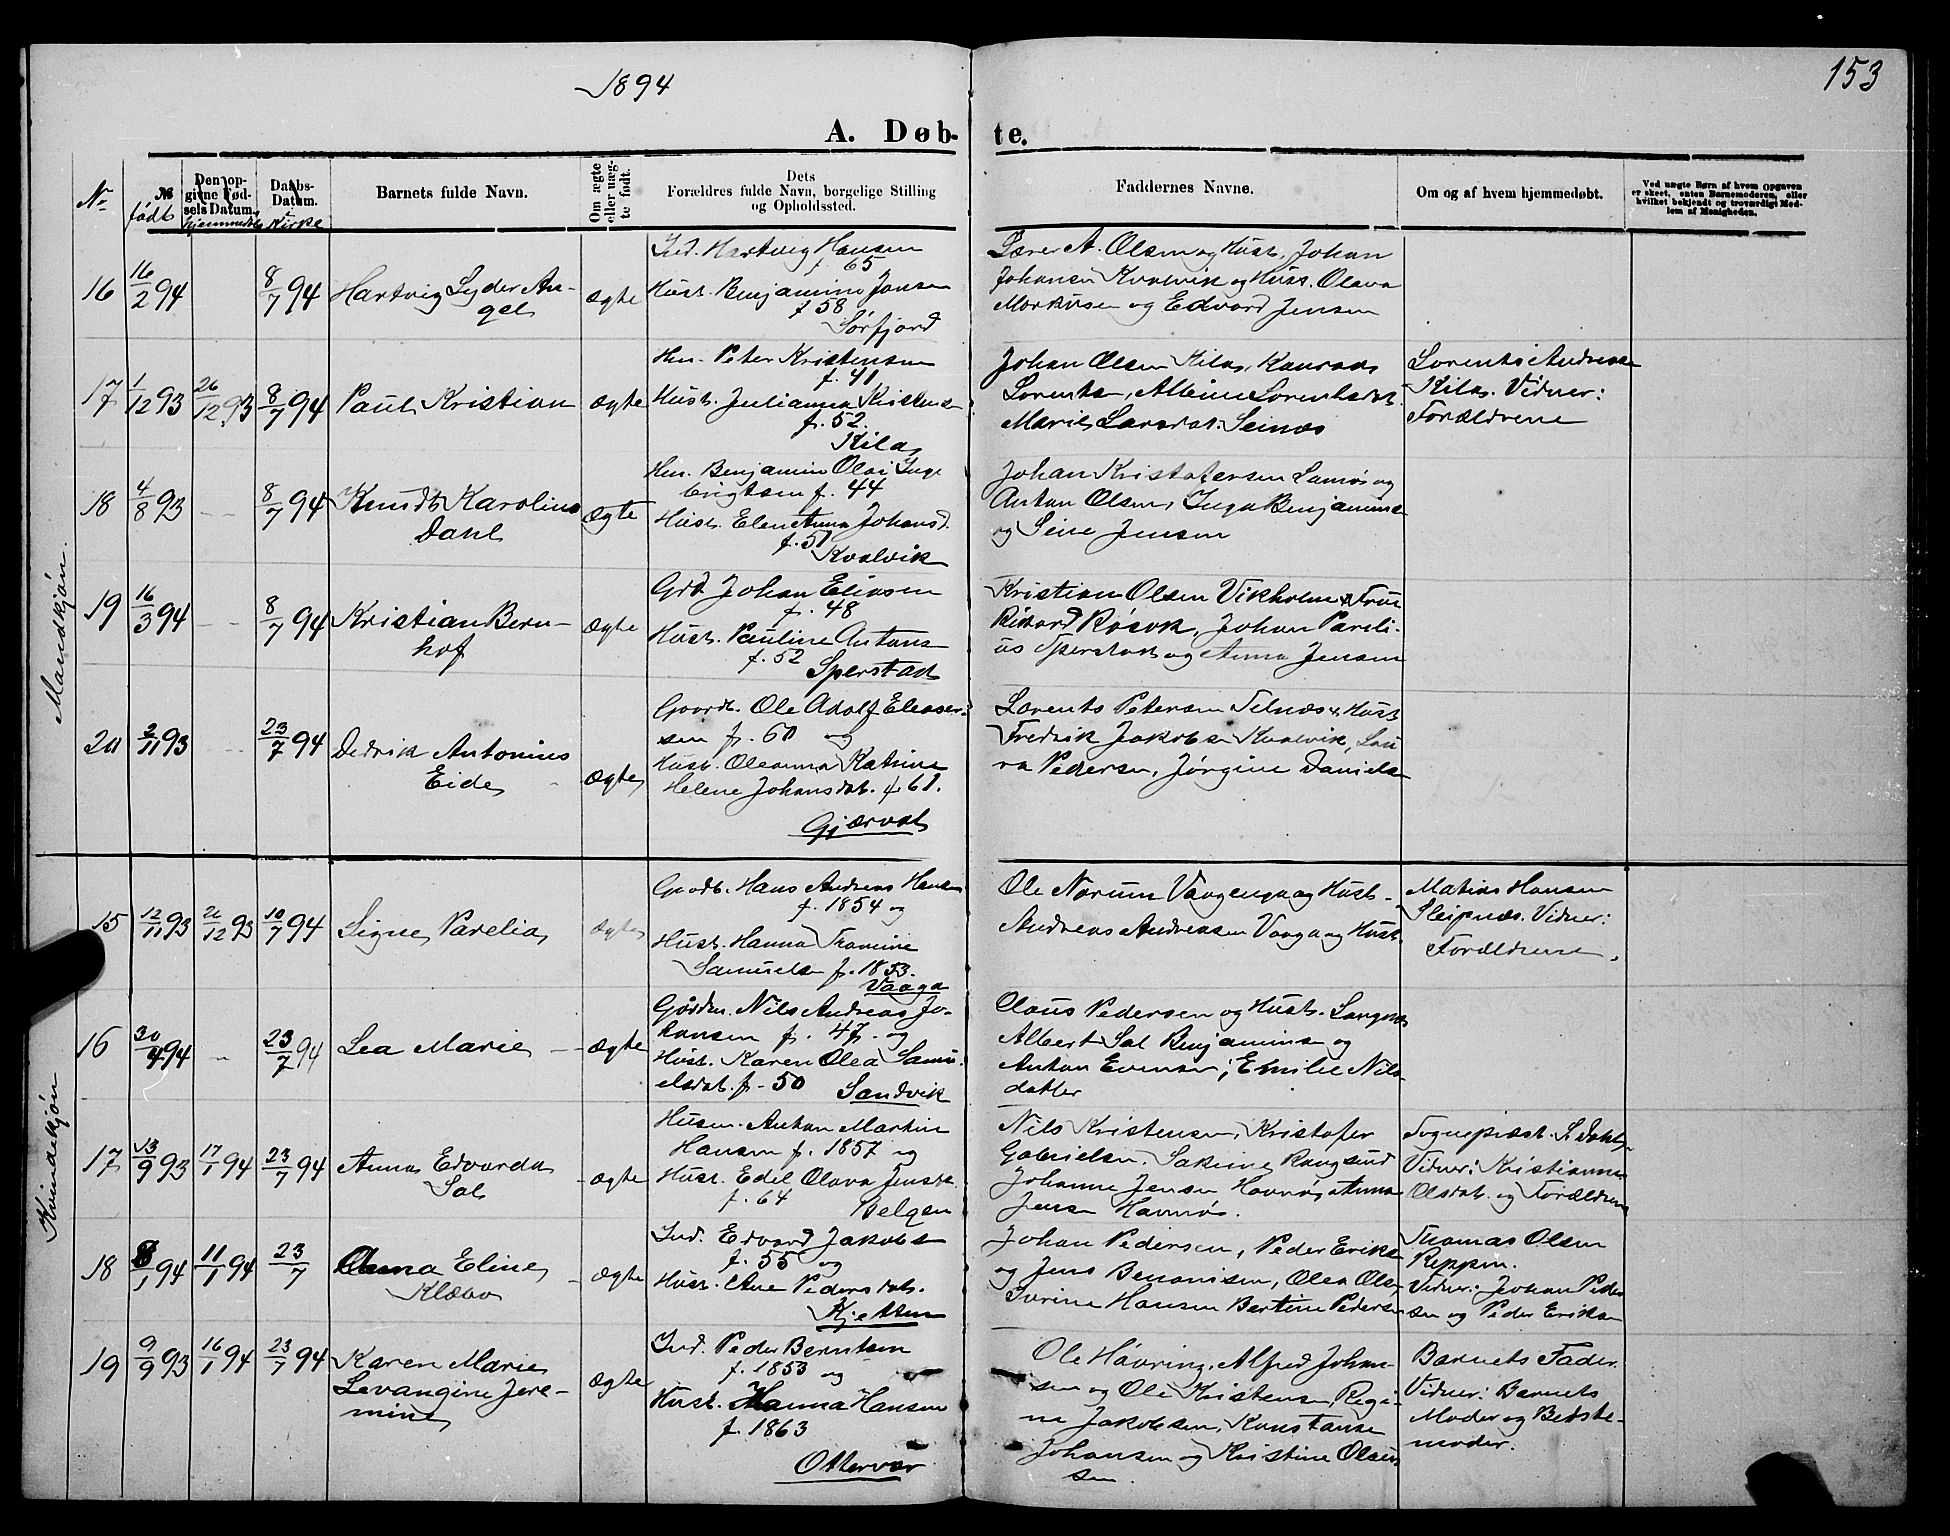 1894
153
A. Døb-
te.
No
№
født
Den op-
givne Fød-
selsDatum.
hjemmedøbt
Daabs-
Datum.
i Kirke
Barnets fulde Navn.
Om ægte
eller uæg-
te født.
Dets
Forældres fulde Navn, borgelige Stilling
og Opholdssted.
Faddernes Navne.
Om og af hvem hjemmedøbt.
Ved uægte Børn af hvem Opgaven
er skeet, enten Barnemoderen, eller
hvilket bekjendt og troværdigt Med-
lem af Menigheden.
Mandkjøn.
16
16/2 94
8/7 94
Hartvig Lyder An-
gel
ægte
Ind. Hartvig Hansen
f. 65
Hust. Benjamine Jansen
f 58
Sørfjord
Lærer A. Olsen og Hust. Johan
Johansen Kvalvik og Hust. Olava
Markusen og Edvard Jensen
17
1/12 93
26/12 93
8/7 94
Paul Kristian
ægte
Hm. Peter Kristensen
f. 41
Hust. Julianna Kristens
f. 52.
Kila
Johan Olsen Kila, Konrad
Lorentsen, Albine Lorentsdat.
Marie Larsdat. Seines
Lorents Andreas
Kila. Vidner:
Forældrene
18
4/8 93
8/7 94
Knudt Karolius
Dahl
ægte
Hm. Benjamin Olai Inge
brigtsen f. 44
Hust. Elen Anna Johansd.
f. 51
Kvalvik
Johan Kristofersen Lamøs og
Anton Olsen, Inga Benjamins
og Seine Jensen
19
16/3 94
8/7 94
Kristian Bern-
hof
ægte
Grd Johan Eliasen
f. 48
Hust. Pauline Antons
f. 52
Sperstad
Kristian Olsen Vikholm & Frue
Rikard Røsok, Johan Pareli-
us Sperstad og Anna Jensen
20
2/11 93
23/7 94
Dedrik Antonius
Eide
ægte
Gaardb. Ole Adolf Eleaser-
sen f. 60 og
Hust. Oleanna Katrine
Helene Johansdat. f 61.
Gjærval
Lorents Petersen Selnæs & Hust
Fredrik Jakobs Kvalvik, Lau
ra Pedersen, Jørgine Daniels
Kvindekjøn
15
12/11 93
26/12 93
10/7 94
Signe Parelia
ægte
Gaardb. Hans Andreas Hansen
f. 1854 og
Hust. Hanna Tramine
Samuels f. 1853.
Vaaga
Ole Norum Vaagenga og Hust.
Andreas Andreasen Vaaga og Hust.
Matias Hansen
Sleipnæs. Vidner:
Forældrene.
16
30/4 94
23/7 94
Lea Marie
ægte
Gaardm. Nils Andreas Jo-
hansen f. 47. og
Hust. Karen Olea Samu-
elsdat. f. 50 Sandvik
Claus Pedersen og Hust. Langnes
Albert Sal Benjamins og
Anton Evensen; Emilie Nils
datter
17
13/9 93
17/1 94
23/7 94
Anna Edvarda
Sol
ægte
Husm. Anton Martin
Hansen f. 1857 og
Hust. Edel Olava Jensd.
f. 64 Selgsen
Nils Kristensen, Kristofer
Gabrielsen. Sakrine Rangsund
Johanne Jensen Havnøs Anna
Jensen Havnøs.
Sognepræst. S. Dahl,
Vidner: Kristianne
Olsdat. og Forældrene
18
8/1 94
11/1 94
23/7
Anna Eline
Klæbo
ægte
Ind. Edvard Jakobs
f. 55 og
Hust. Ane Pedersdat.
Kjetsen
Johan Pedersen, Peder Eriks
og Jens Benonisen, Olea Ols,
Iverine Hansen Bertine Peders
Thomas Olsen
Reppen.
Vidner: Johan Peder
sen og Peder Eriksen
19
9/9 93
16/1 94
23/7 94
Karen Marie
Levangine Jere-
mine
ægte
Ind. Peder Berntsen
f. 1853 og
Hust. Hanna Hansen
f. 1863
Ottervær
Ole Havring, Alfred Johan-
sen og Ole Kristensen, Regi-
ne Jakobsen, Konstanse
Johansen og Kristine Olaus
sen.
Barnets Fader.
Vidner: Barnets
Moder og Bedste-
moder.